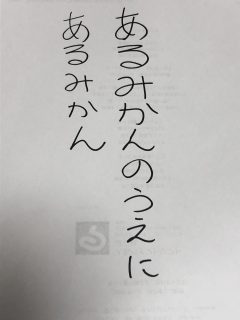 あるみかんのうえに
あるみかん